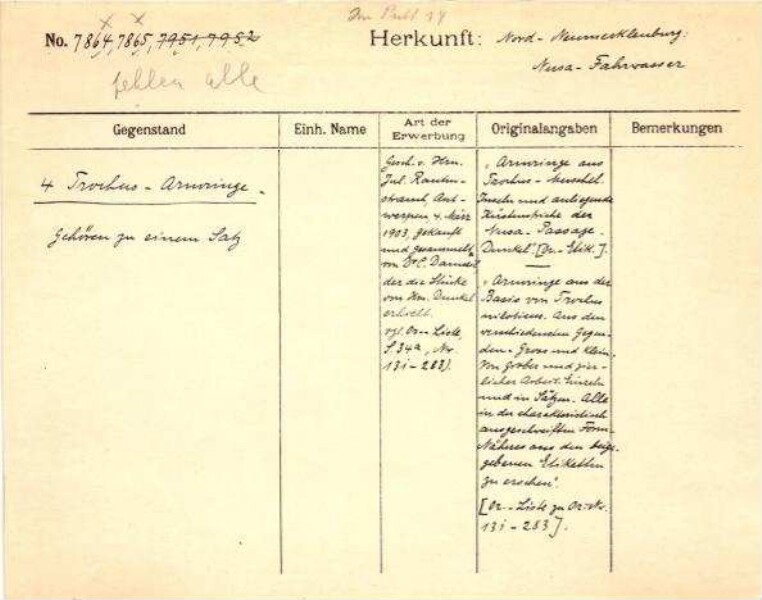 Im Pult 34
No. 7864, 7865, 7951, 7952
Herkunft: Nord-Neumecklenburg:
Nusa-Fahrwasser
fehlen alle
Gegenstand
Einh. Name
Art der
Erwerbung
Originalangaben
Bemerkungen
4 Trochus-Armringe.
Gehören zu einem Satz
Gesch. v. Hrn.
Jul. Rauten-
strauch, Ant-
werpen, 4. März
1903, gekauft
und gesammelt
von Dr C.
der die Stücke
von Hrn. Dunkel
erhielt.
vgl. Or.-Liste,
S 34a, Nr.
131-283).
"Armringe aus
Trochus-Muschel.
Inseln und anliegende
Küstenstriche der
Nusa-Passage.
Dunkel". [Or.-Etik.].
"Armringe aus der
Basis von Trochus
niloticus. Aus den
verschiedensten Gegen-
den. Gross und Klein.
Von grober und zier-
licher Arbeit. Einzeln
und in Sätzen. Alle
in der charakteristisch
ausgeschweiften Form.
Näheres aus den beige-
gebenen Etiketten
zu ersehen".
[Or.-Liste zu Or.-Nr.
131-283].